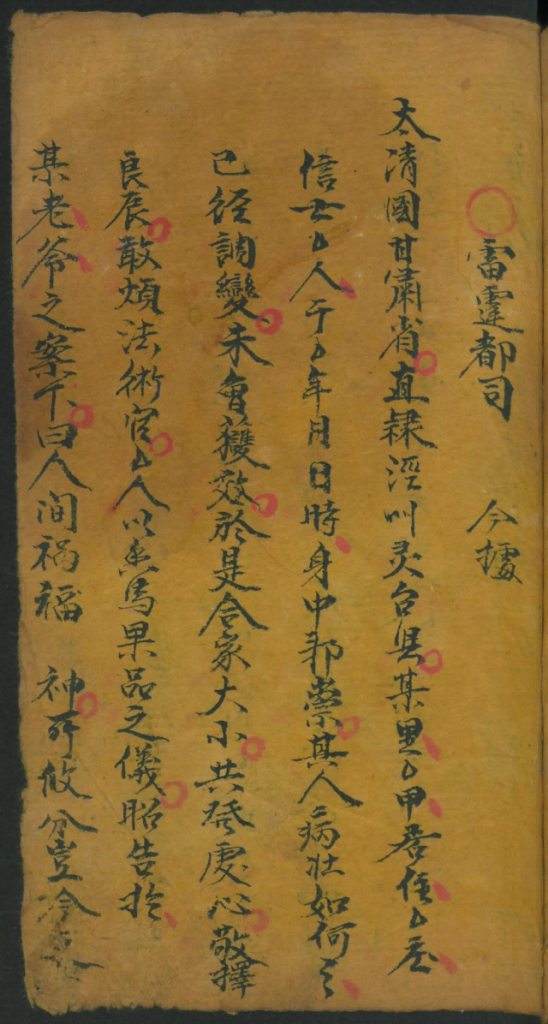 雷霆都司　今據
太清國甘肅省直隸涇州灵台具某里厶甲居住厶庄
信士厶人于厶年月日時身中邪祟其人病壮如何云
已經調變未曾獲效於是合家大小共發虔心敬擇
良辰敢煩法術官厶人以香馬果品之儀昭告扵
某老爷之案下曰人间禍福　神所攸分豈